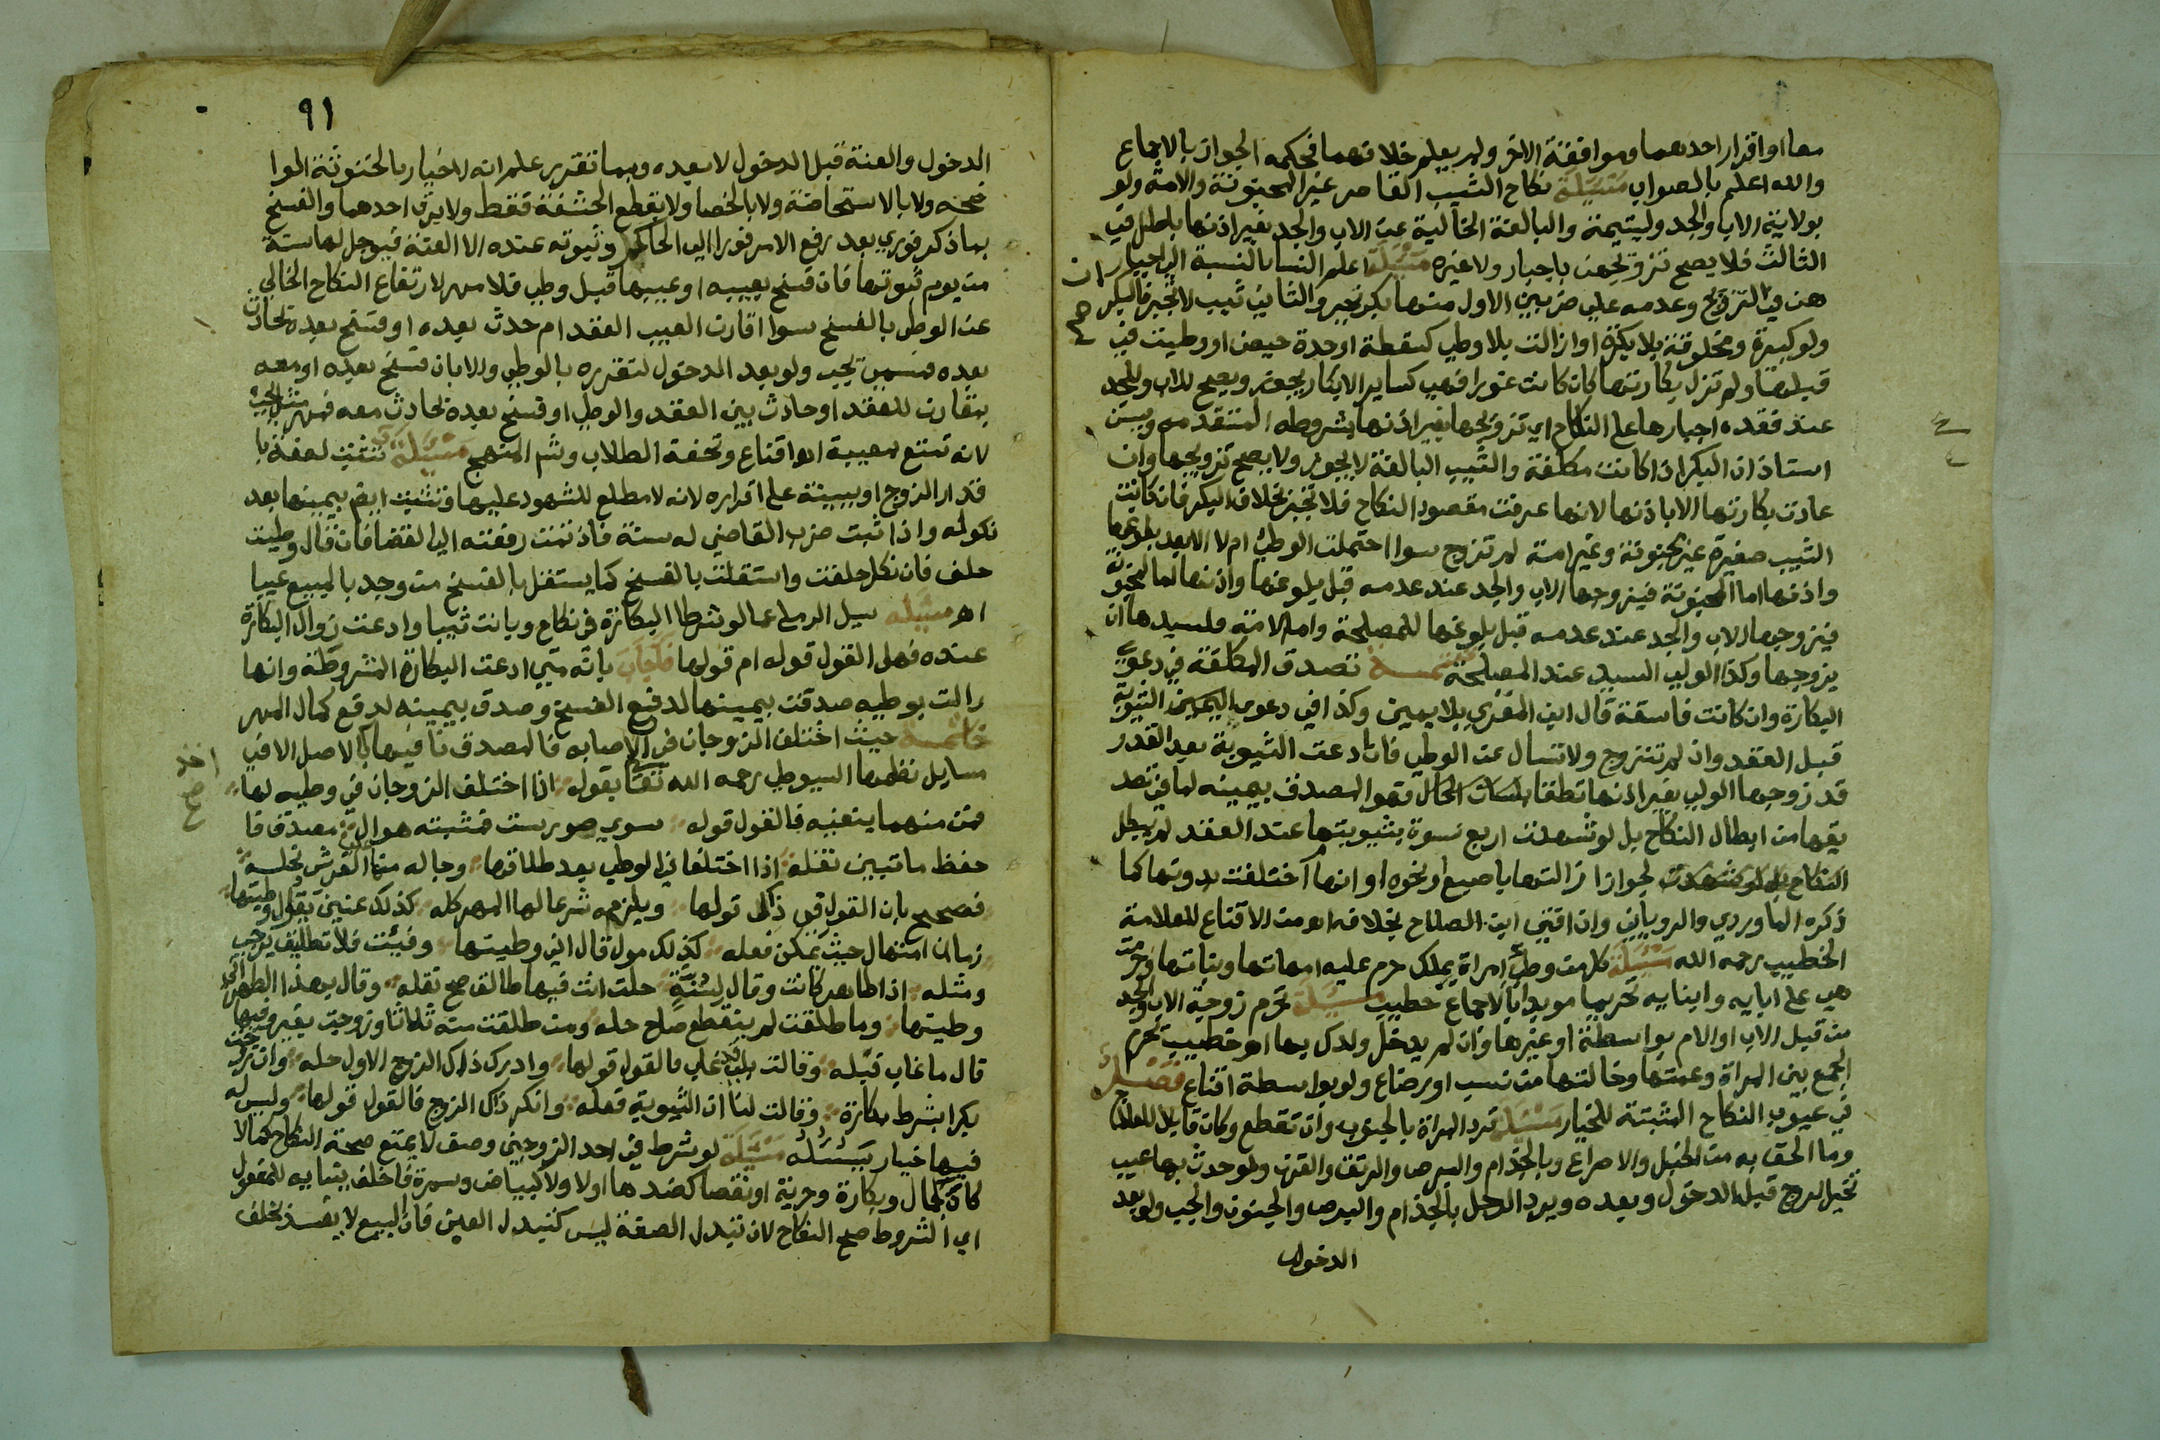 معا او اقرار احدهما وموافقة الاخر ولم يعلم خلافهما فحكمه الجواز بالاجماع
والله اعلم بالصواب مسئلة نكاح الثيب القاصر غير المجنونة والامة ولو
بولاية الاب والجد وليتيمة والبالغة الخالية عن الاب والجد بغير اذنها باطل في
الثالث فلا يصح تزويجهن باجبار ولا غيره مسئلة اعلم النسا بالنسبة الى اجبار
هن في التزويج وعدمه على ضربين الاول منهما بكر تجبر والثاني ثيب لا تجبر فالبكر
ولو كبيرة ومخلوقة بلا بكرة او زالت بلا وطي كسقطة او حدة حيض او وطيت في
قبلها ولم تزل بكارتها كان كانت غورا فهي كساير الابكار يجوز ويصح للاب وللجد
عند فقده اجبارها على النكاح اي تزويجها بغير اذنها بشروطه المتقدمه ويسن
استاذان البكر اذا كانت مكلفة والثيب البالغة لا يجوز ولا يصح تزويجها وان
عادت بكارتها الا باذنها لانها عرفت مقصود النكاح فلا تجبر بخلاف البكر فان كانت
الثيب صغيرة غير مجنونة وغير امة لم تزوج سوا احتملت الوطي ام لا الا بعد بلوغها
واذنها اما المجنونة فيزوجها الاب والجد عند عدمه قبل بلوغها واذنها اما المجنونة
فيزوجها الاب والجد عند عدمه قبل بلوغها للمصلحة واما الامة فلسيدها ان
يزوجها وكذا لولي السيد عند المصلحة تتمة تصدق المكلفة في دعوى
البكارة وان كانت فاسقة قال ابن المقري بلا يمين وكذا في دعوى اليمين الثيوبة
قبل العقد وان لم تتزوج ولا تسال عن الوطي فان ادعت الثيوبة بعد العقد
قد زوجها الولي بغير اذنها نطقا لسان الحال فهو المصدق بيمينه لما في تصد
يقها من ابطال النكاح بل لو شهدت اربع نسوة بثيوبتها عند العقد لم يبطل
النكاح بل لو شهدت لجواز ازالتها باصبع او نحوه او انها اختلقت بدونها كما
ذكره الماوردي والروياني وان افتى ابن الصلاح بخلافه اه من الاقناع للعلامة
الخطيب رحمه الله مسئلة كل من وطي امراة بملك حرم عليه امهاتها وبناتها وحرمت
هي على ابايه وابنايه تحريما مويدا بالاجماع خطيب مسئلة تحرم زوجة الاب والجد
من قبل الاب او الام بواسطة او غيرها وان لم يدخل ولدك بها اه خطيب تحرم
الجمع بين المراة وعمتها وخالتها من نسب او رضاع ولو بواسطة اقناع فصل
في عيوب النكاح المثبتة للخيار مسئلة ترد المراة بالجنون وان تقطع وكان قابلا للعلاج
وما الحق به من الخبل والاصراع وبالجذام والبرص والرتق والقرن ولو حدث بها عيب
تخيل الزوج قبل الدخول وبعده ويرد الرجل بالجذام والبرص والجنون والجب ولو بعد
الدخول
ان
صح
٩١
الدخول والعنة قبل الدخول لا بعده وبما تقرر علم انه لا خيار بالخنوثة الوا
ضحة ولا بالاستحاضة ولا بالخصا ولا بقطع الحشفة فقط ولا يزنى احدهما والفسخ
بما ذكر فوري بعد رفع الامر فورا الى الحاكم وثبوته عنده الا العنة فيوجل لها سنة
من يوم ثبوتها فان فسخ بعيبه او عيبها قبل وطي فلا مهر لارتفاع النكاح الخالي
عن الوطي بالفسخ سوا اقارن العيب العقد ام حدث بعده او فسخ بعده بحادث
بعده فمسمى يجب ولو بعد الدخول لتقرره بالوطي والا بان فسخ بعده او معه
بمقارن للعقد او حادث بين العقد والوطي او فسخ بعده بحادث معه فمهر مثل يجب
لانه تمتع بمعيبة اه اقناع وتحفة الطلاب وشم المنهج مسئلة تثبت لعنة با
قرار الزوج او ببينة على اقراره لانه لا مطلع للشهود عليها وتثبت ايض بيمينها بعد
نكوله واذا ثبت ضرب القاضي له سنة فاذا تمت رفعته الى القضا فان قال وطيت
حلف فان نكل حلفت واستقلت بالفسخ كما يستقل بالفسخ من وجد بالمبيع عيبا
اه مسئله سيل الرملي عما لو شرط البكارة في نكاح وبانت ثيبا وادعت زوال البكارة
عنده فهل القول قوله ام قولها فاجاب بانه متي ادعت البكارة المشروطة وانها
زالت بوطيه صدقت بيمينها لدفع الفسخ وصدق بيمينه لدفع كمال المهر
خاتمة حيث اختلف الزوجان في الاصابه فالمصدق نافيها كالاصل الا في
مسايل نظمها السيوطي رحمه الله تعالى بقوله اذا اختلف الزوجان في وطيه لها
فمن منهما ينفيه فالقول قوله سوى صور ست فمثبته هو ال مصدق فا
حفظ ما تبين نقله اذا اختلفا في الوطي بعد طلاقها وجا له منها الفرش نجله
فصحح بان القول في ذاك قولها ويلزمه شرعا لها المهر كله كذلك عنين يقول وطيتها
زمان امتهال حيث يمكن فعله كذلك مول قال اني وطيتها وفيئت فلا تطليق يرجى
ومثله اذا طاهر كانت وقال لسنة حلت انت فيها طالق صح نقله وقال بهذا الطهر اني
وطيتها وما طلقت لم ينقطع صلح حله ومن طلقت منه ثلاثا وزوجت بغير وفيها
قال ما غاب قبله وقالت بلى قد غاب فالقول قولها وادرك ذاك الزوج الاول حله وان زوجت
بكرا بشرط بكارة وقالت لنا ان الثيوبة فعله وانكر ذاك الزوج فالقول قولها وليس له
فيها خيار مسئلة لو شرط في احد الزوجين وصف لا يمنع صحة النكاح كمالا
كان كجمال وبكارة وحرية او نقصا كضدها اولا ولا كبياض وسمرة فاخلف ببنايه للمفعول
اي الشروط صح النكاح لان تبدل الصفة ليس كتبدل العين فان البيع لا يفسد بخلف
اخذ
صح